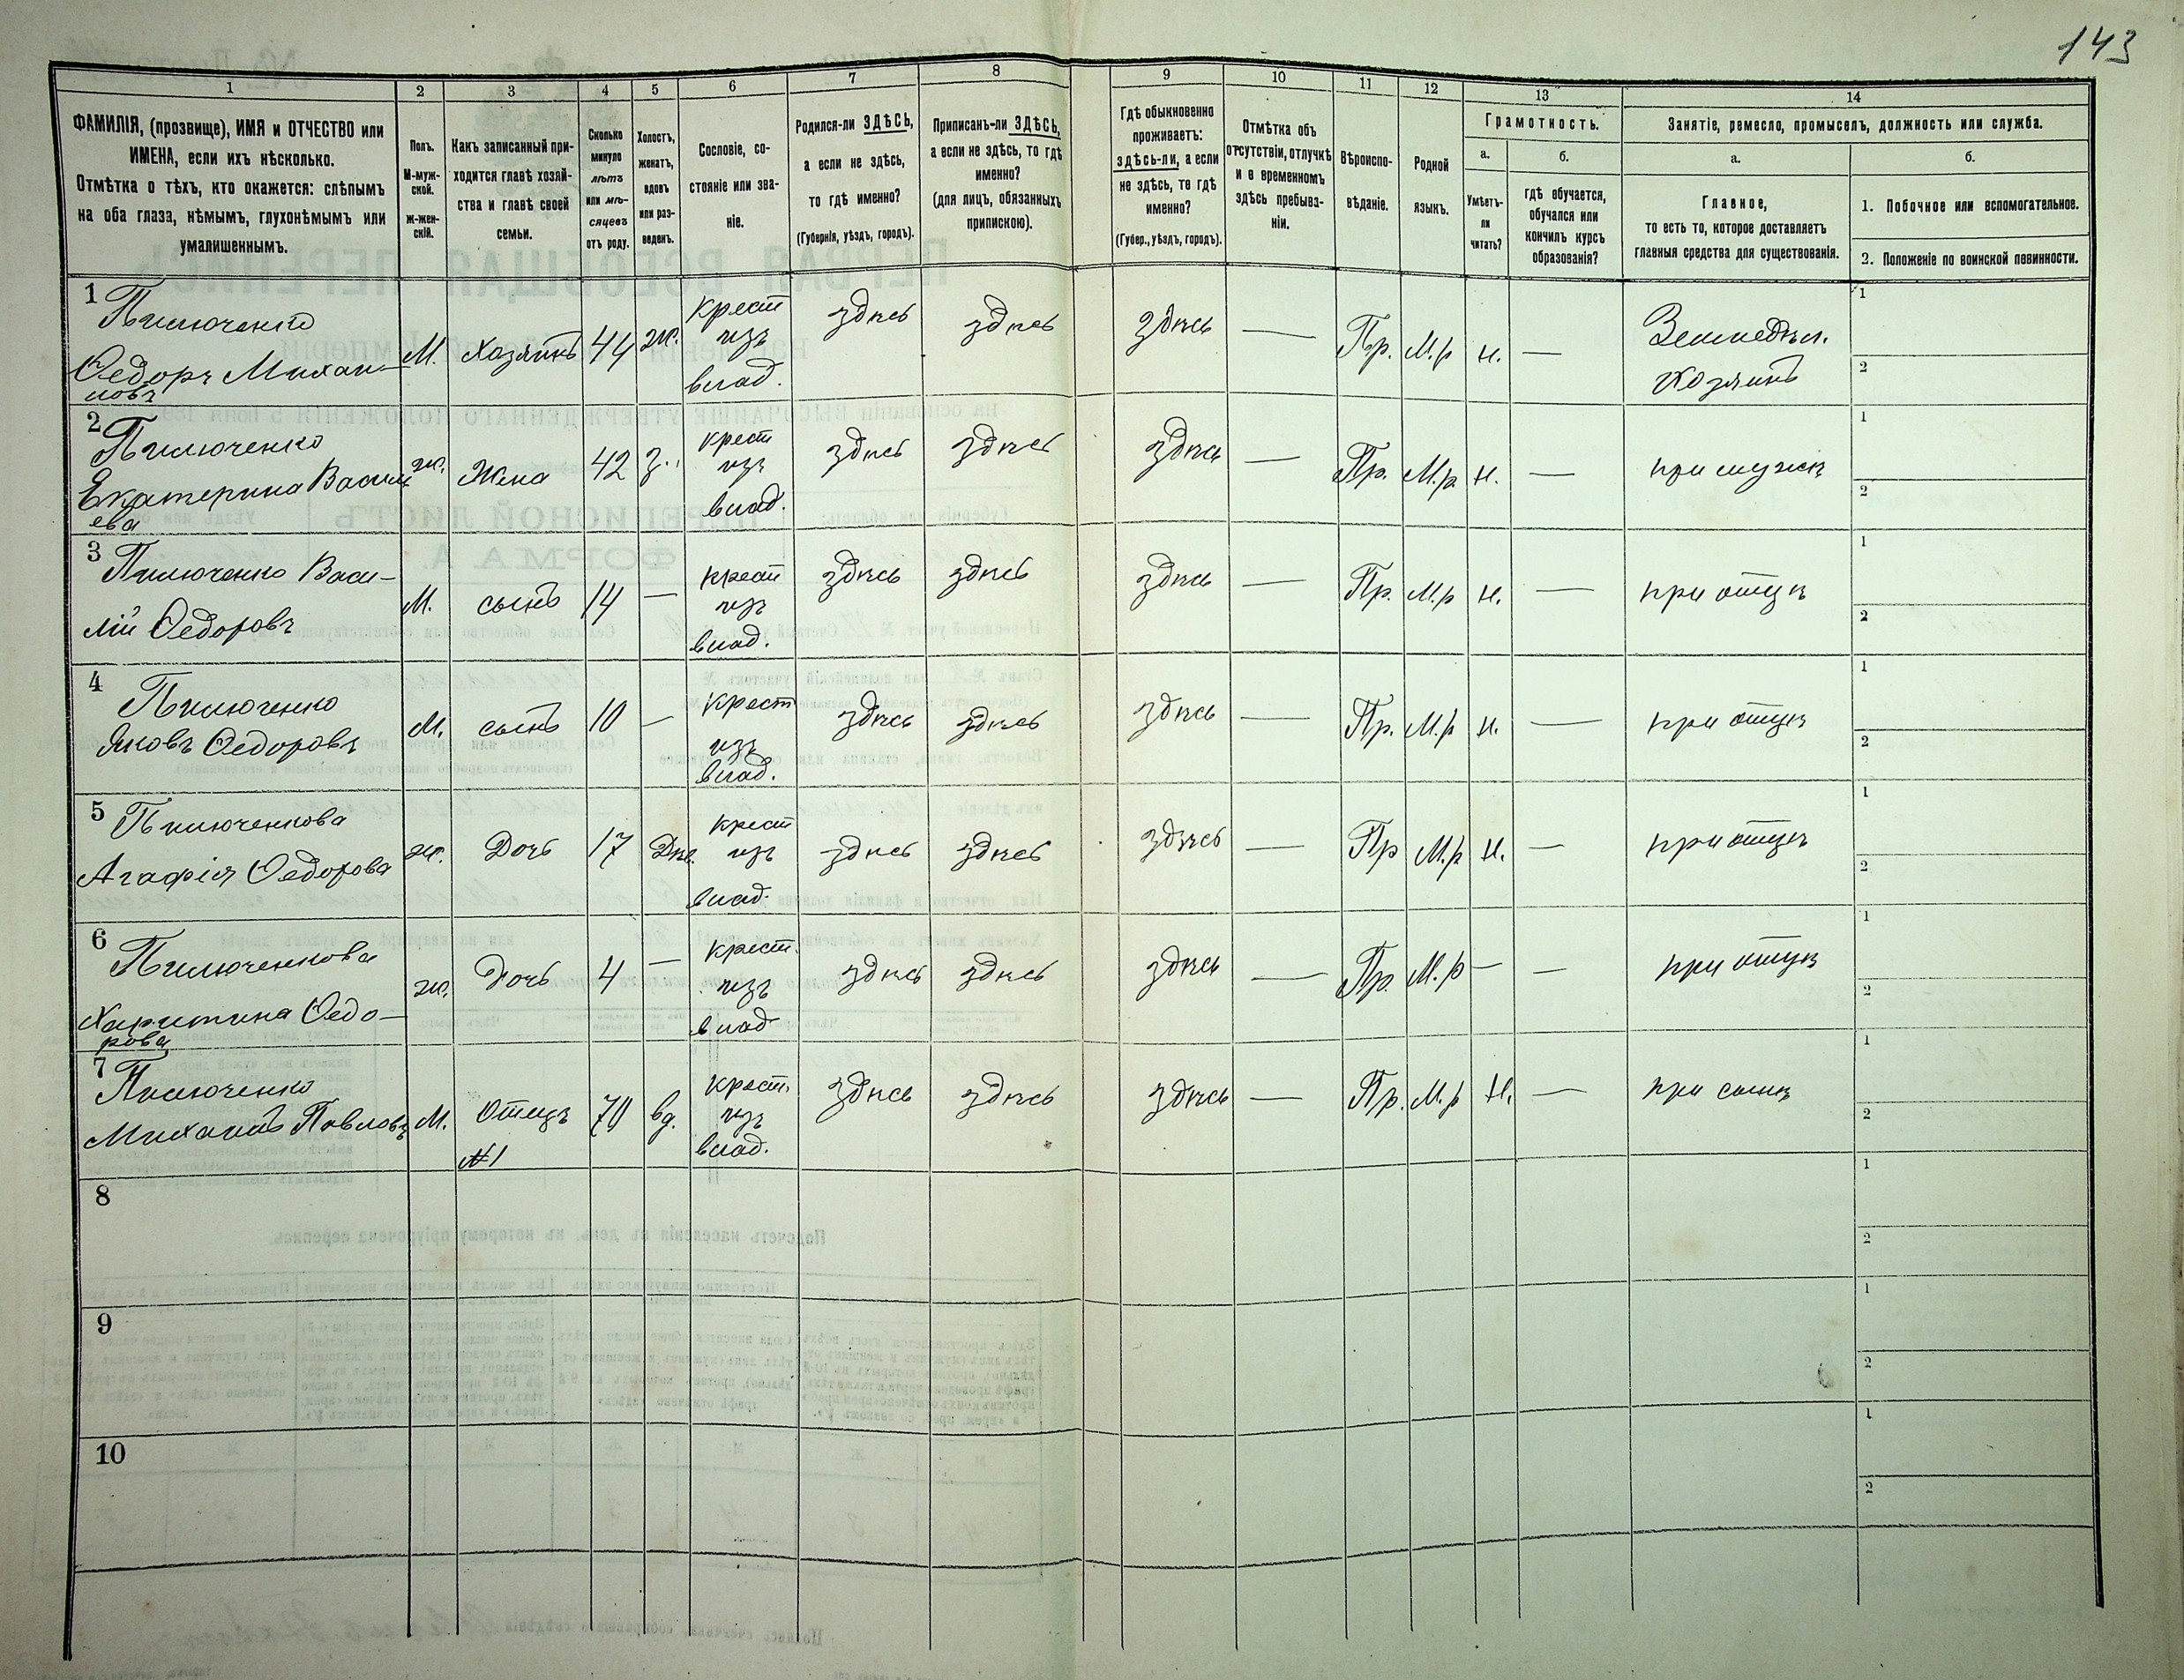 143
1 2 3 4 5 6 7 8 9 10 11 12 13 14
ФАМИЛІЯ, (прозвище), ИМЯ и ОТЧЕСТВО или
ИМЕНА, если ихъ нѣсколько.
Отмѣтка о тѣхъ, кто окажется: слѣпымъ
на оба глаза, нѣмымъ, глухонѣмымъ или
умалишеннымъ.
Полъ.
М-муж-
ской.
ж-жен-
скій.
Какъ записанный при-
ходится главѣ хозяй-
ства и главѣ своей
семьи.
Сколько
минуло
лѣтъ
или мѣ-
сяцевъ
отъ роду.
Холостъ,
женатъ,
вдовъ
или раз-
веденъ.
Сословіе, со-
стояніе или зва-
ніе.
Родился-ли ЗДѢСЬ,
а если не здѣсь,
то гдѣ именно?
(Губернія, уѣздъ, городъ).
Приписанъ-ли ЗДѢСЬ,
а если не здѣсь, то гдѣ
именно?
(для лицъ, обязанныхъ
припискою).
Гдѣ обыкновенно
проживаетъ:
здѣсь-ли, а если
не здѣсь, то гдѣ
именно?
(Губер., уѣздъ, городъ).
Отмѣтка объ
отсутствіи, отлучкѣ
и о временномъ
здѣсь пребыва-
ніи.
Вѣроиспо-
вѣданіе.
Родной
языкъ.
Грамотность.
а.
Умѣетъ-
ли
читать?
б.
гдѣ обучается,
обучался или
кончилъ курсъ
образованія?
Занятіе, ремесло, промыселъ, должность или служба.
а.
Главное,
то есть то, которое доставляетъ
главныя средства для существованія.
б.
1. Побочное или вспомогательное.
2. Положеніе по воинской повинности.
1
Пилюченко
Ѳедоръ Михаи-
ловъ
М. Хозяинъ 44 ж.
крест
изъ
влад.
здѣсь здѣсь здѣсь — Пр. М.р н. —
Земледѣл.
хозяинъ
1
2
2
Пилюченко
Екатерина Василь
ева
ж. Жена 42 з.
крест
изъ
влад.
здѣсь здѣсь здѣсь — Пр. М.р н. — при мужѣ
1
2
3
Пилюченко Васи-
лій Ѳедоровъ
М. сынъ 14 —
крест
изъ
влад.
здѣсь здѣсь здѣсь — Пр. М.р н. — при отцѣ
1
2
4
Пилюченко
Яковъ Ѳедоровъ
М. сынъ 10 —
крест
изъ
влад.
здѣсь здѣсь здѣсь — Пр. М.р н. — при отцѣ
1
2
5
Пилюченкова
Агафія Ѳедорова
ж. Дочь 17 Дѣв.
крест
изъ
влад.
здѣсь здѣсь здѣсь — Пр М.р н. — при отцѣ
1
2
6
Пилюченкова
Харитина Ѳедо-
рова
ж. Дочь 4 —
крест.
изъ
влад
здѣсь здѣсь здѣсь — Пр. М.р — — при отцѣ
1
2
7
Пилюченко
Михаилъ Павловъ
М. Отецъ
№1
70 вд.
крест.
изъ
влад.
здѣсь здѣсь здѣсь — Пр. М.р н. — при сынѣ
1
2
8
1
2
9
1
2
10
1
2